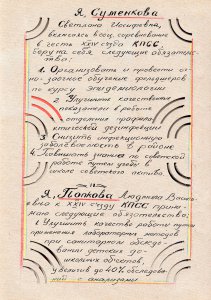 Я, Сутенкова
Светлана Иосифовна,
включаясь в соц. соревнование
в честь XXIV съезда КПСС
беру на себя следующие обязательства:
1. Организовать и провести
заочное обучение фельдшеров
по курсу эпидемиологии
2. Улучшить качественные
показатели в работе
отделения профилактической дезинфекции
3. Снизить инфекционную
заболеваемость в районе
4. Повышать знания по советской
работе путем учебы в
школе советского актива.
Я, Попкова Людмила
к XXIV съезду КПСС
следующие обязательства:
1. Улучшить качество работы путем
применения лабораторных методов
при санитарном обследовании детских дошкольных объектов,
увелич до 40% обследований
с анализами